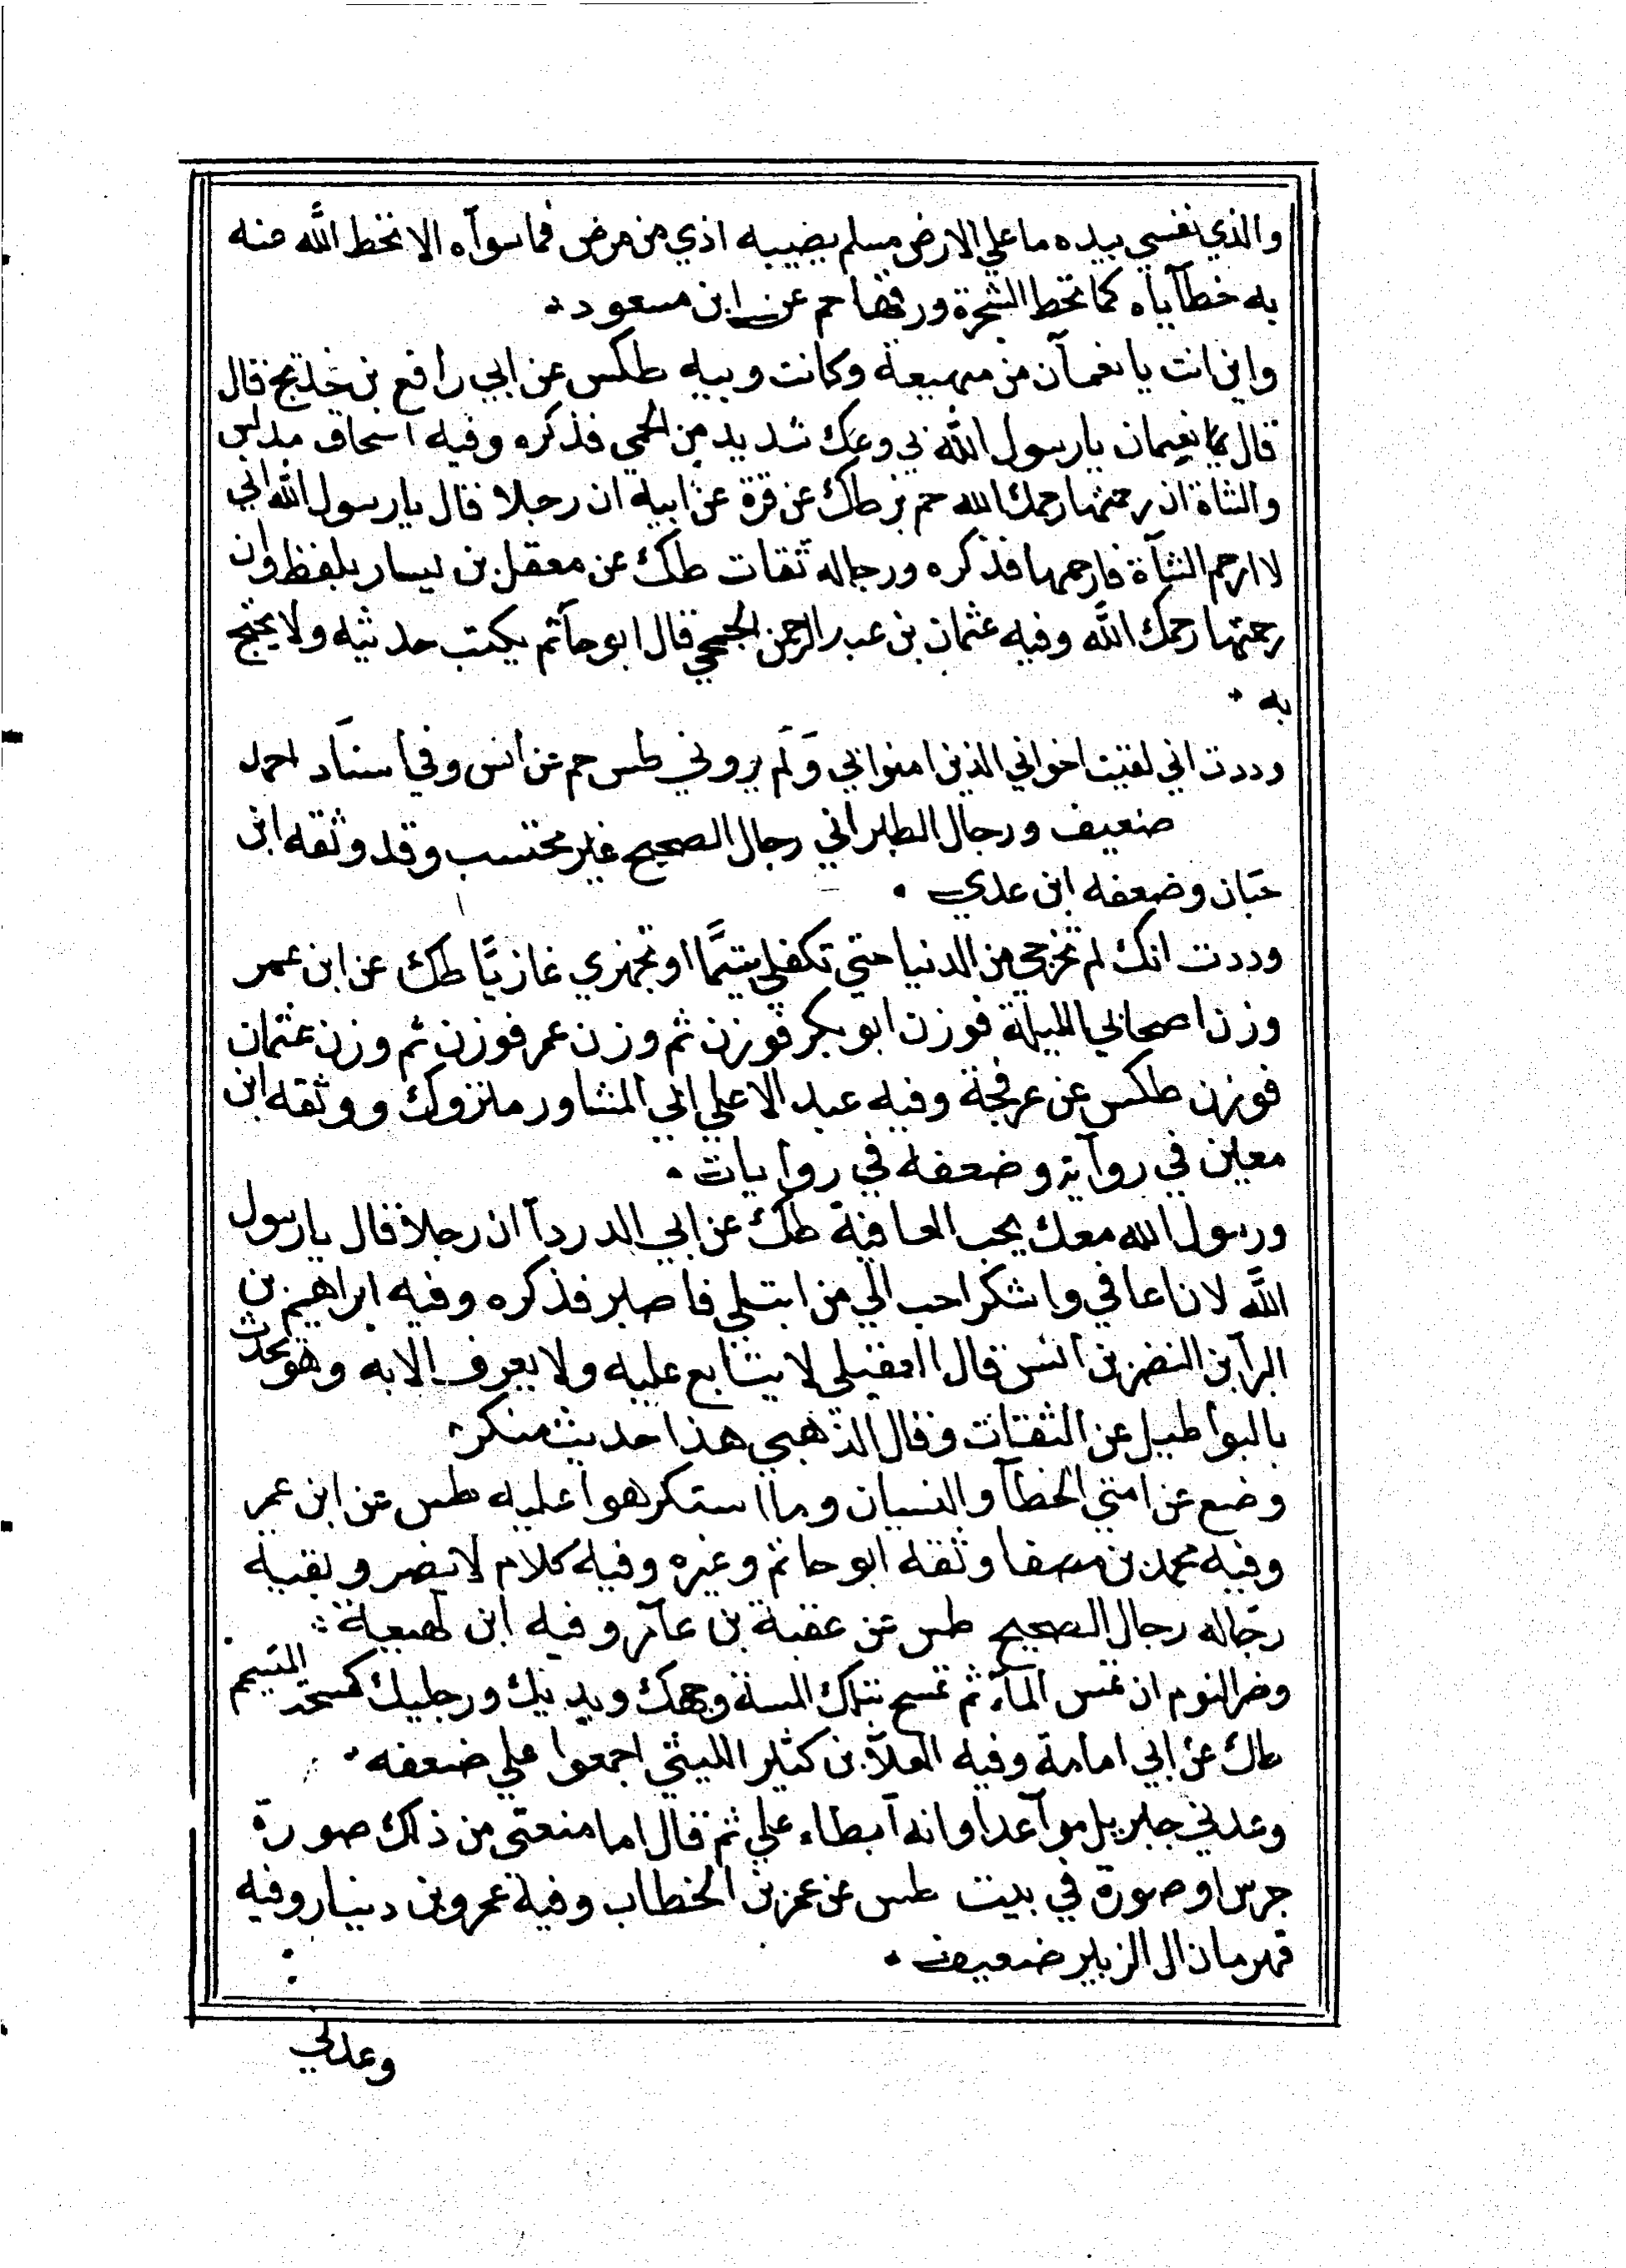 والذي نفسي بيده ما علي الارض مسلم يصيبه اذي من مرض فما سوآه الا تحط الله منه
به خطآياه كما تحط الشجرة ورقها حم عن ابن مسعود
واين انت يا نعمآن من مهيعة وكانت وبيه طكس عن ابي رافع بن خديج قال
قال نعيمان يا رسول الله بي وعك شديد من الحمي فذكره وفيه اسحاق مدلس
والشاة ان رحمتها رحمك الله حم بز طك عن قرة عن ابيه ان رجلا قال يا رسول الله اني
لا ارحم الشآة فارحمها فذكره ورجاله ثقات طك عن معقل بن يسار بلفظ وان
رحمتها رحمك الله وفيه عثمان بن عبد الرحمن الجمحي قال ابو حآتم يكتب حديثه ولا يحتج
به
وددت اني لقيت اخواني الذين امنوا بي ولم يروني طس حم عن انس وفي اسنآد احمد
ضعيف ورجال الطبراني رجال الصحيح غير محتسب وقد وثقه ابن
حبان وضعفه ابن عدي
وددت انك لم تخرجي من الدنيا حتي تكفلي يتيمًا او تجهزي غازيًا طك عن ابن عمر
وزن اصحابي الليلة فوزن ابو بكر فوزن ثم وزن عمر فوزن ثم وزن عثمان
فوزن طكس عن عرفجة وفيه عبد الاعلي ابي المشاور متروك ووثقه ابن
معين في روآية وضعفه في روايات
ورسول الله معك يحب العافية طك عن ابي الدردآ ان رجلا قال يا رسول
الله لان اعافي واشكر احب الي من ابتلي فاصبر فذكره وفيه ابراهيم بن
البرآ بن النضر بن انس قال العقيلي لا يتابع عليه ولا يعرف الا به وهو يحدث
بالبواطيل عن الثقات وقال الذهبي هذا حديث منكر
وضع عن امتي الخطآ والنسيان وما استكرهوا عليه طس عن ابن عمر
وفيه محمد بن مصفا وثقه ابو حاتم وغيره وفيه كلام لا يضر وبقية
رجاله رجال الصحيح طس عن عقبة بن عآمر وفيه ابن لهيعة
وضر النوم ان تمس المآء ثم تمسح بتلك المسة وجهك ويديك ورجليك كمسحة المتيمم
طك عن ابي امامة وفيه العلآ بن كثير الليثي اجمعوا علي ضعفه
وعدني جبريل موآعدا وانه ابطاء علي ثم قال اما منعتي من ذلك صورة
جرس او صورة في بيت طس عن عمر بن الخطاب وفية عمرو بن دينار وفيه
قهرمان ال الزبير ضعيف
وعدني